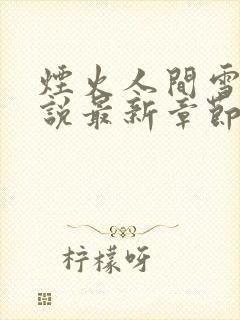 煙火人間雪
說最新章節
柠檬呀